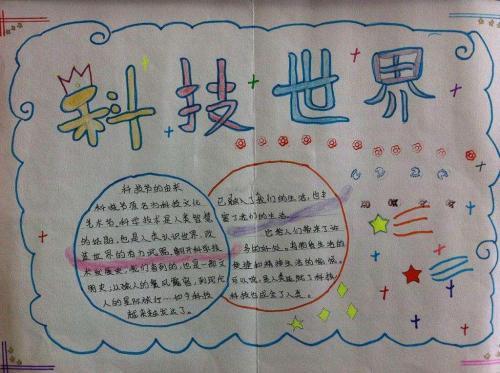 科技世界
科技节的由来
科技节原名为科技文化
艺术节。科学技术是人类智慧
的结晶，也是人类认识世界、改
造世界的有力武器。翻开科学技
术发展史，我们看到的，也是一部文
明史；从猿人的
到现代
人的星际旅行……如今科技
越来越发达了。
已融入了我们的生活，也丰
富了我们的生活。
它给人们带来了许
多的好处。有着生活的
便捷和精神生活的愉悦。
可以说，是人类成就了科技，
科技也成全了人类。